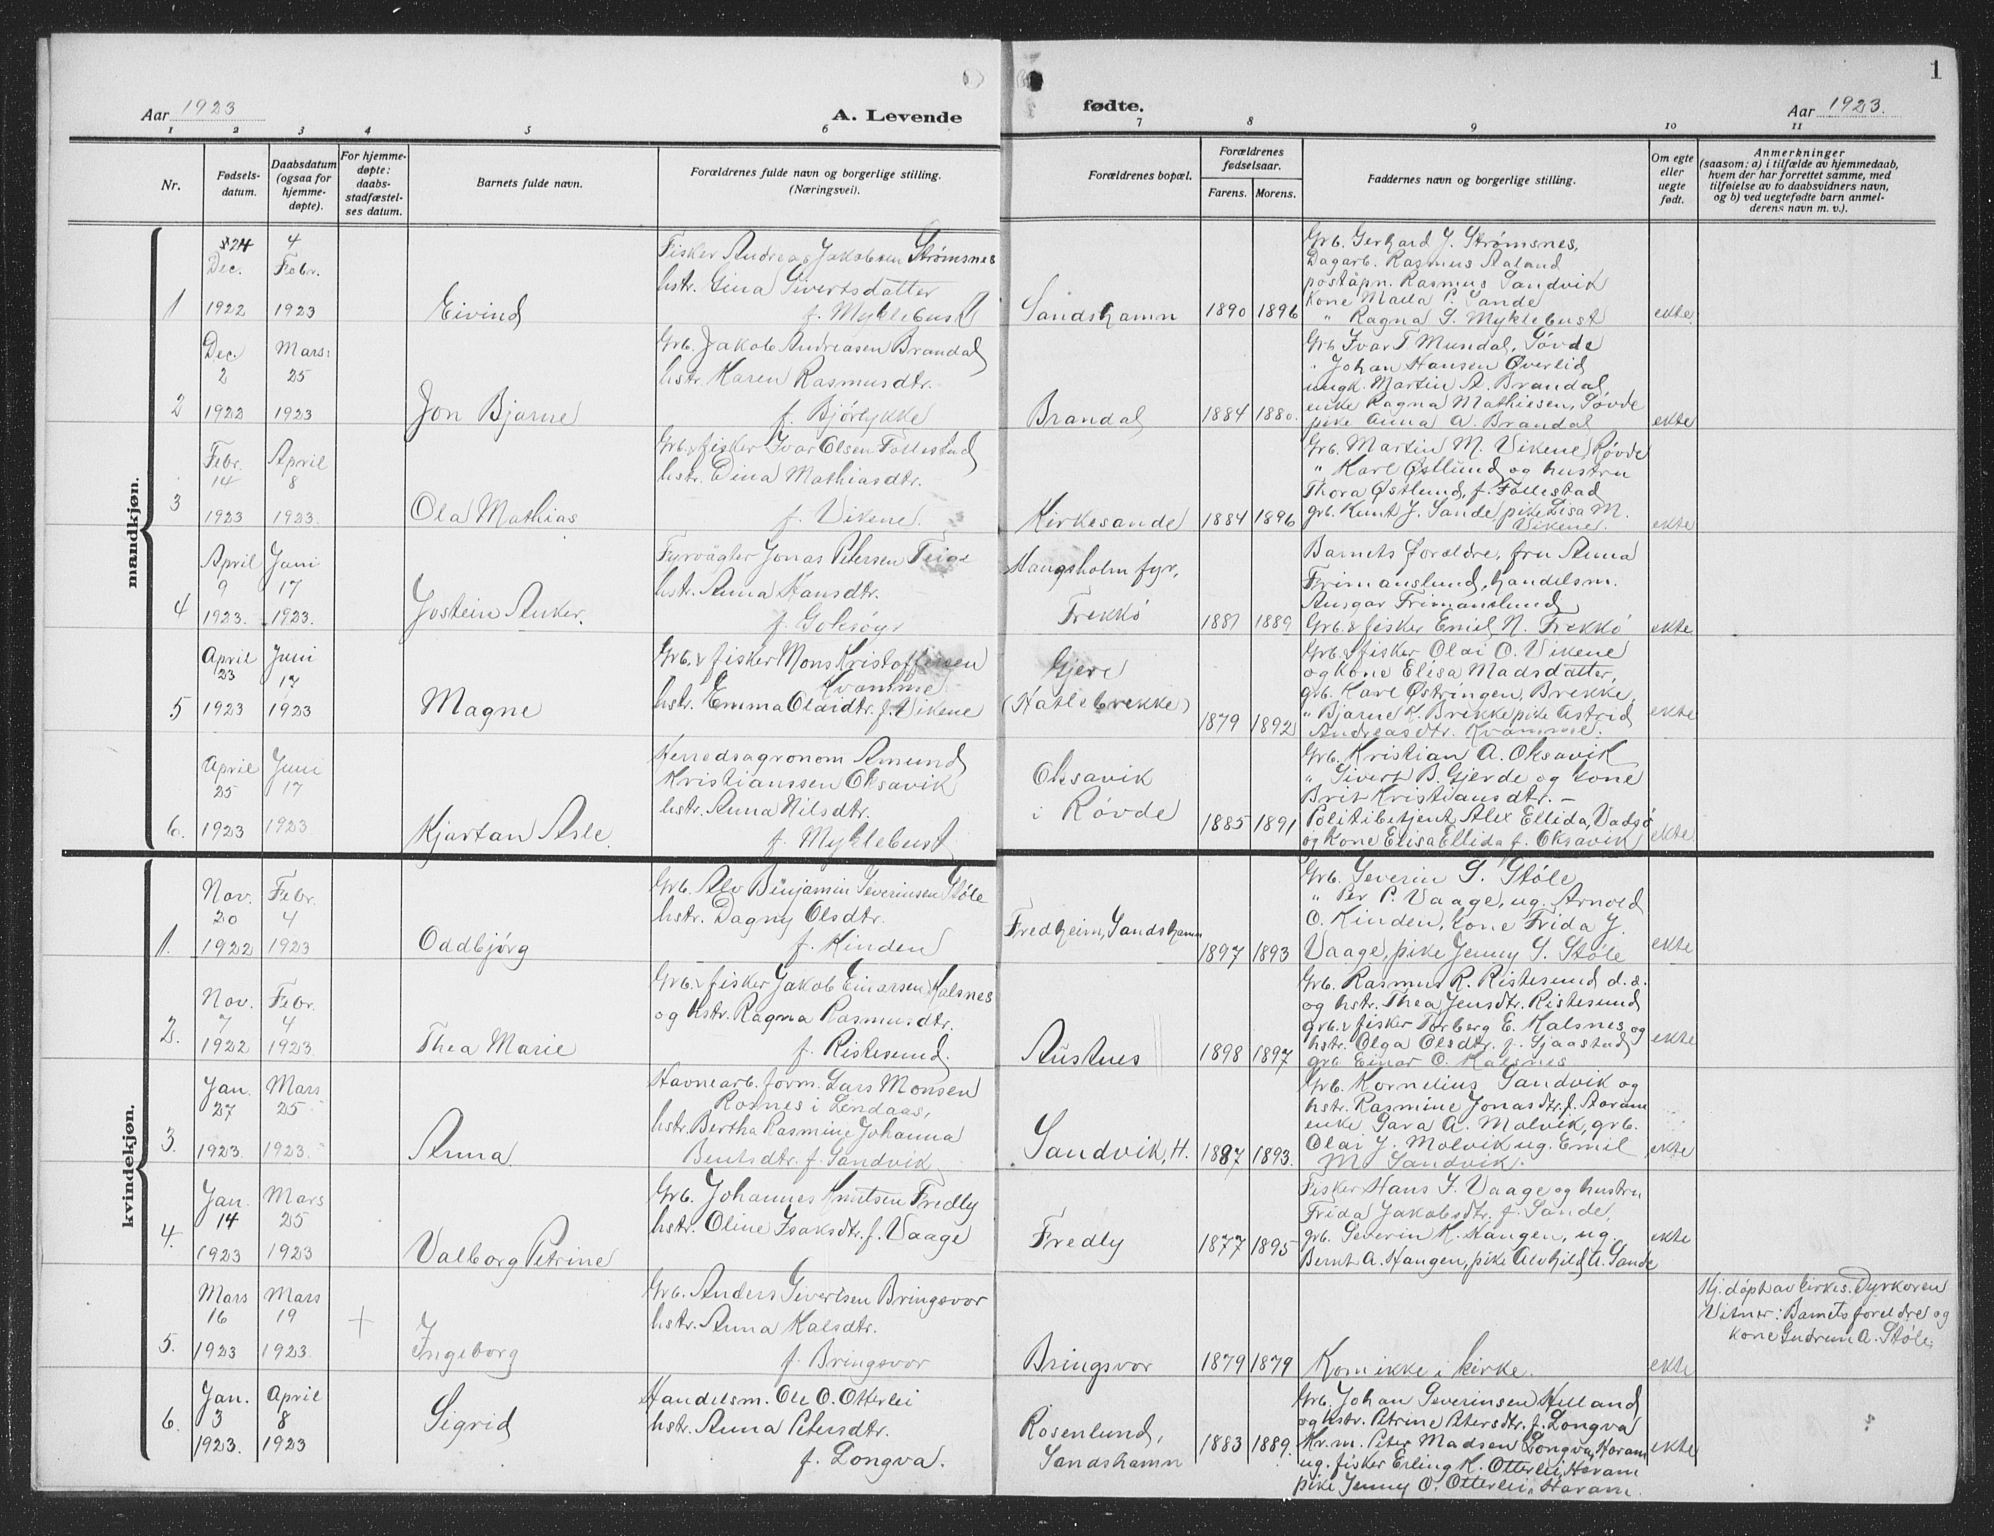 1
Aar 1923
A. Levende
fødte.
Aar 1923.
1 2 3 4 5 6 7 8 9 10 11
Nr.
Fødsels-
datum.
Daabsdatum
(ogsaa for
hjemme-
døpte).
For hjemme-
døpte:
daabs-
stadfæstel-
ses datum.
Barnets fulde navn.
Forældrenes fulde navn og borgerlige stilling.
(Næringsvei).
Forældrenes bopæl.
Forældrenes
fødselsaar.
Farens. Morens.
Faddernes navn og borgerlige stilling.
Om egte
eller
uegte
født.
Anmerkninger
(saasom: a) i tilfælde av hjemmedaab,
hvem der har forrettet samme, med
tilføielse av to daabsvidners navn,
og b) ved uegtefødte barn anmel-
derens navn m. v.).
mandkjøn.
1
24
Dec.
1922
4
Febr.
1923
Eivind
Fisker Andreas Jakobsen Strømsnes
hstr. Gina Sivertsdatter
f. Myklebust
Sandshamn
1890 1896
Grb. Gerhard J. Strømsnes,
Dagarb. Rasmus Aaland
poståpn. Rasmus Sandvik
Kone Malla P. Sande
" Ragna S. Myklebust
ekte
2
Dec.
2
1922
Mars
25
1923
Jon Bjarne
Grb. Jakob Andreasen Brandal
hstr. Karen Rasmusdtr.
f. Bjørlykke
Brandal
1884 1880.
Grb. Ivar T. Mundal, Søvde
" Johan Hansen Øverlid
ungk. Martin A. Brandal
enke Ragna Mathiesen, Søvde
pike Anna A. Brandal
ekte
3
Febr.
14
1923
April
8
1923.
Ola Mathias
Grb. & fisker Ivar Olsen Follestad
hstr. Dina Mathiasdtr.
f. Vikene.
Kirkesande
1884 1896
Grb. Martin M. Vikene, Røvde
" Karl Østlund og hustru
Thora Østlund, f. Follestad
grb. Knut J. Sande, pike Lisa M.
Vikene.
ekte
4
April
9
1923.
Juni
17
1923.
Jostein Anker.
Fyrvagter Jonas Petersen Teige
hstr. Anna Hansdtr.
f. Goksøyr
Haugsholm fyr,
Frekkö
1881 1889
Barnets foreldre, fru Anna
Frimanslund, handelsm.
Ansgar Frimanslund
Grb. & fisker Emil N. Frekkö
ekte
5
April
23
1923
Juni
17
1923
Magne
Grb. & fisker Mons Kristoffersen
Kvamme
hstr. Emma Olaidtr. f. Vikene
Gjere
(Hatlebrekke)
1879 1892
Grb. & fisker Olai O. Vikene
og kone Elisa Madsdatter,
grb. Karl Østringen, Brekke,
" Bjarne K. Brekke pike Astrid
Andreasdtr. Kvamme.
ekte
6.
April
25
1923
Juni
17
1923
Kjartan Asle.
Herredsagronom Amund
Kristianssen Oksavik
hstr. Anna Nilsdtr.
f. Myklebust
Oksavik
i Røvde
1885 1891
Grb. Kristian A. Oksavik
" Sivert B. Gjerde og kone
Brit Kristiansdtr. –
Politibetjent Alex Ellida, Vadsö
og kone Elisa Ellida f. Oksavik
ekte
kvindekjøn.
1.
Nov.
20
1922
Febr.
4
1923
Oddbjörg
Grb. Alv Benjamin Severinsen Støle
hstr. Dagny Olsdtr.
f. Kinden
Fredheim, Sandshamn
1897 1893
Grb. Severin S. Støle
" Per P. Vaage, ug. Arnold
O. Kinden, kone Frida J.
Vaage, pike Jenny S. Støle
ekte
2.
Nov.
7
1922
Febr.
4
1923.
Thea Marie
Grb. & fisker Jakob Einarsen Kalsnes
og hstr. Ragna Rasmusdtr.
f. Ristesund.
Austnes
1898 1897
Grb. Rasmus R. Ristesund d.e.
og hstr. Thea Jensdtr. Ristesund
grb. & fisker Torberg E. Kalsnes og
hstr. Olga Olsdtr. f. Sjaastad,
grb. Einar O. Kalsnes
ekte
3.
Jan.
27
1923.
Mars
25
1923.
Anna.
Havnearb. form. Lars Monsen
Rosnes i Lindaas,
hstr. Bertha Rasmine Johanna
Bentsdtr. f. Sandvik
Sandvik, H.
1887 1893.
Grb. Kornelius Sandvik og
hstr. Rasmine Jonasdtr. f. Haram
enke Sara A. Molvik, grb.
Olai J. Molvik ug. Emil
M. Sandvik.
ekte
4.
Jan.
14
1923
Mars
25
1923
Valborg Petrine
Grb. Johannes Knutsen Fredly
hstr. Oline Isaksdtr. f. Vaage
Fredly
1877 1895
Fisker Hans J. Vaage og hustru
Frida Jakobsdtr. f. Sande,
grb. Severin K. Haugen, ug.
Bernt A. Haugen, pike Alvhild A. Sande
ekte
5.
Mars
16
1923
Mars
19
1923.
+
Ingeborg
Grb. Anders Sivertsen Bringsvor
hstr. Anna Kalsdtr.
f. Bringsvor
Bringsvor
1879 1879
Kom ikke i kirke.
ekte
Hj. døpt av kirkes. Dyrkoren
Vitner: Barnets foreldre og
kone Gudrun A. Støle.
6.
Jan.
3
1923.
April
8
1923
Sigrid
Handelsm. Ole O. Otterlei
hstr. Anna Petersdtr.
f. Longva.
Rosenlund,
Sandshamn
1883 1889.
Grb. Johan Severinsen Helland
og hstr. Petrine Petersdtr. f. Longva
Kr.m. Peter Madsen Longva, Haram
ug. fisker Erling K. Otterlei, Haram
pike Jenny O. Otterlei, Haram.
ekte